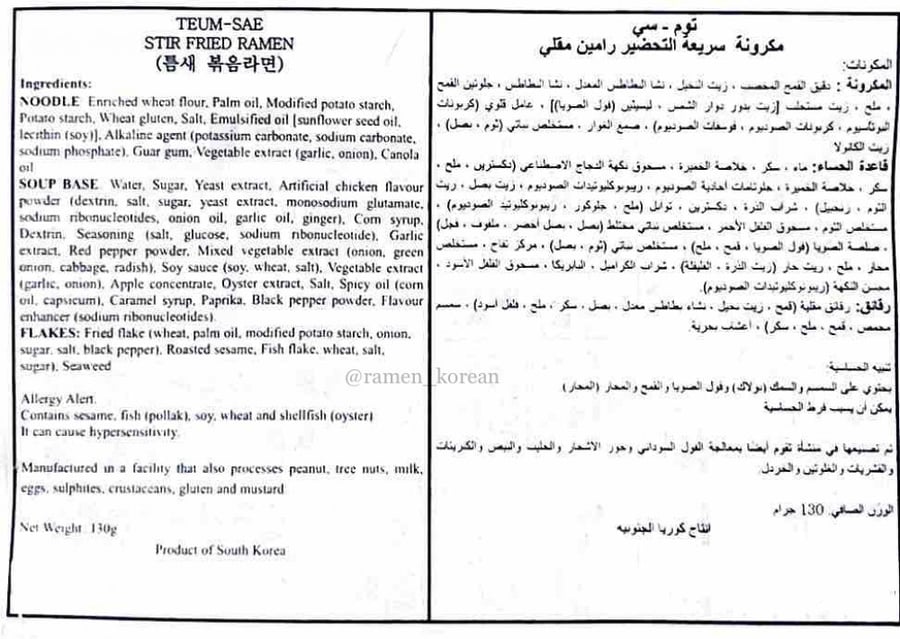 TEUM-SAE
STIR FRIED RAMEN
(틈새 볶음라면)
Ingredients:
NOODLE Enriched wheat flour, Palm oil, Modified potato starch,
Potato starch, Wheat gluten, Salt, Emulsified oil [sunflower seed oil,
lecithin (soy)], Alkaline agent (potassium carbonate, sodium carbonate,
sodium phosphate), Guar gum, Vegetable extract (garlic, onion), Canola
oil
SOUP BASE Water, Sugar, Yeast extract, Artificial chicken flavour
powder (dextrin, salt, sugar, yeast extract, monosodium glutamate,
sodium ribonucleotides, onion oil, garlic oil, ginger), Corn syrup,
Dextrin, Seasoning (salt, glucose, sodium ribonucleotide), Garlic
extract, Red pepper powder, Mixed vegetable extract (onion, green
onion, cabbage, radish), Soy sauce (soy, wheat, salt), Vegetable extract
(garlic, onion), Apple concentrate, Oyster extract, Salt, Spicy oil (corn
oil, capsicum), Caramel syrup, Paprika, Black pepper powder, Flavour
enhancer (sodium ribonucleotides).
FLAKES: Fried flake (wheat, palm oil, modified potato starch, onion,
sugar, salt, black pepper), Roasted sesame, Fish flake, wheat, salt,
sugar), Seaweed
Allergy Alert.
Contains sesame, fish (pollak), soy, wheat and shellfish (oyster)
It can cause hypersensitivity.
Manufactured in a facility that also processes peanut, tree nuts, milk,
eggs, sulphites, crustaceans, gluten and mustard
Net Weight: 130g
Product of South Korea
توم - سي
مكرونة سريعة التحضير رامين مقلي
المكونات:
المكرونة : دقيق القمح المخصب ، زيت النخيل ، نشا البطاطس المعدل ، نشا البطاطس ، جلوتين القمح
، ملح ، زيت مستحلب [زيت بذور دوار الشمس ، ليسيثين (فول الصويا)] ، عامل قلوي (كربونات
البوتاسيوم ، كربونات الصوديوم ، فوسفات الصوديوم) ، صمغ الغوار ، مستخلص نباتي (ثوم ، بصل) ،
زيت الكانولا
قاعدة الحساء: ماء ، سكر ، خلاصة الخميرة ، مسحوق نكهة الدجاج الاصطناعي (دكسترين ، ملح ،
سكر ، خلاصة الخميرة ، جلوتامات أحادية الصوديوم ، ريبونوكليوتيدات الصوديوم ، زيت بصل ، زيت
الثوم ، زنجبيل) ، شراب الذرة ، دكسترين ، توابل (ملح ، جلوكوز ، ريبونوكليوتيد الصوديوم) ،
مستخلص الثوم ، مسحوق الفلفل الأحمر ، مستخلص نباتي مختلط (بصل ، بصل أخضر ، ملفوف ، فجل)
، صلصة الصويا (فول الصويا ، قمح ، ملح) ، مستخلص نباتي (ثوم ، بصل) ، مركز تفاح ، مستخلص
محار ، ملح ، زيت حار (زيت الذرة ، الفليفلة) ، شراب الكراميل ، البابريكا ، مسحوق الفلفل الأسود ،
محسن النكهة (ريبونوكليوتيدات الصوديوم).
رقائق: رقائق مقلية (قمح ، زيت نخيل ، نشاء بطاطس معدل ، بصل ، سكر ، ملح ، فلفل أسود) ، سمسم
محمص ، قمح ، ملح ، سكر) ، أعشاب بحرية.
تنبيه الحساسية:
يحتوي على السمسم والسمك (بولاك) وفول الصويا والقمح والمحار (المحار)
يمكن أن يسبب فرط الحساسية
تم تصنيعها في منشأة تقوم أيضا بمعالجة الفول السوداني وجوز الأشجار والحليب والبيض والكبريتات
والقشريات والغلوتين والخردل.
الوزن الصافي: 130 جرام
انتاج كوريا الجنوبيه
@ramen_korean